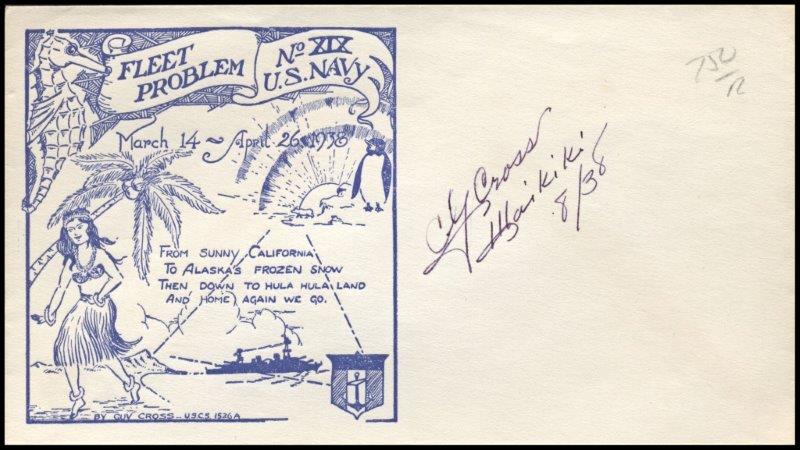 FLEET PROBLEM
No XIX
U.S. NAVY
March 14 ~ April 26, 1938
FROM SUNNY CALIFORNIA
TO ALASKA'S FROZEN SNOW
THEN DOWN TO HULA HULA LAND
AND HOME AGAIN WE GO.
BY GUV CROSS - U.S.C.S. 1536A
Cross
Waikiki
8/38